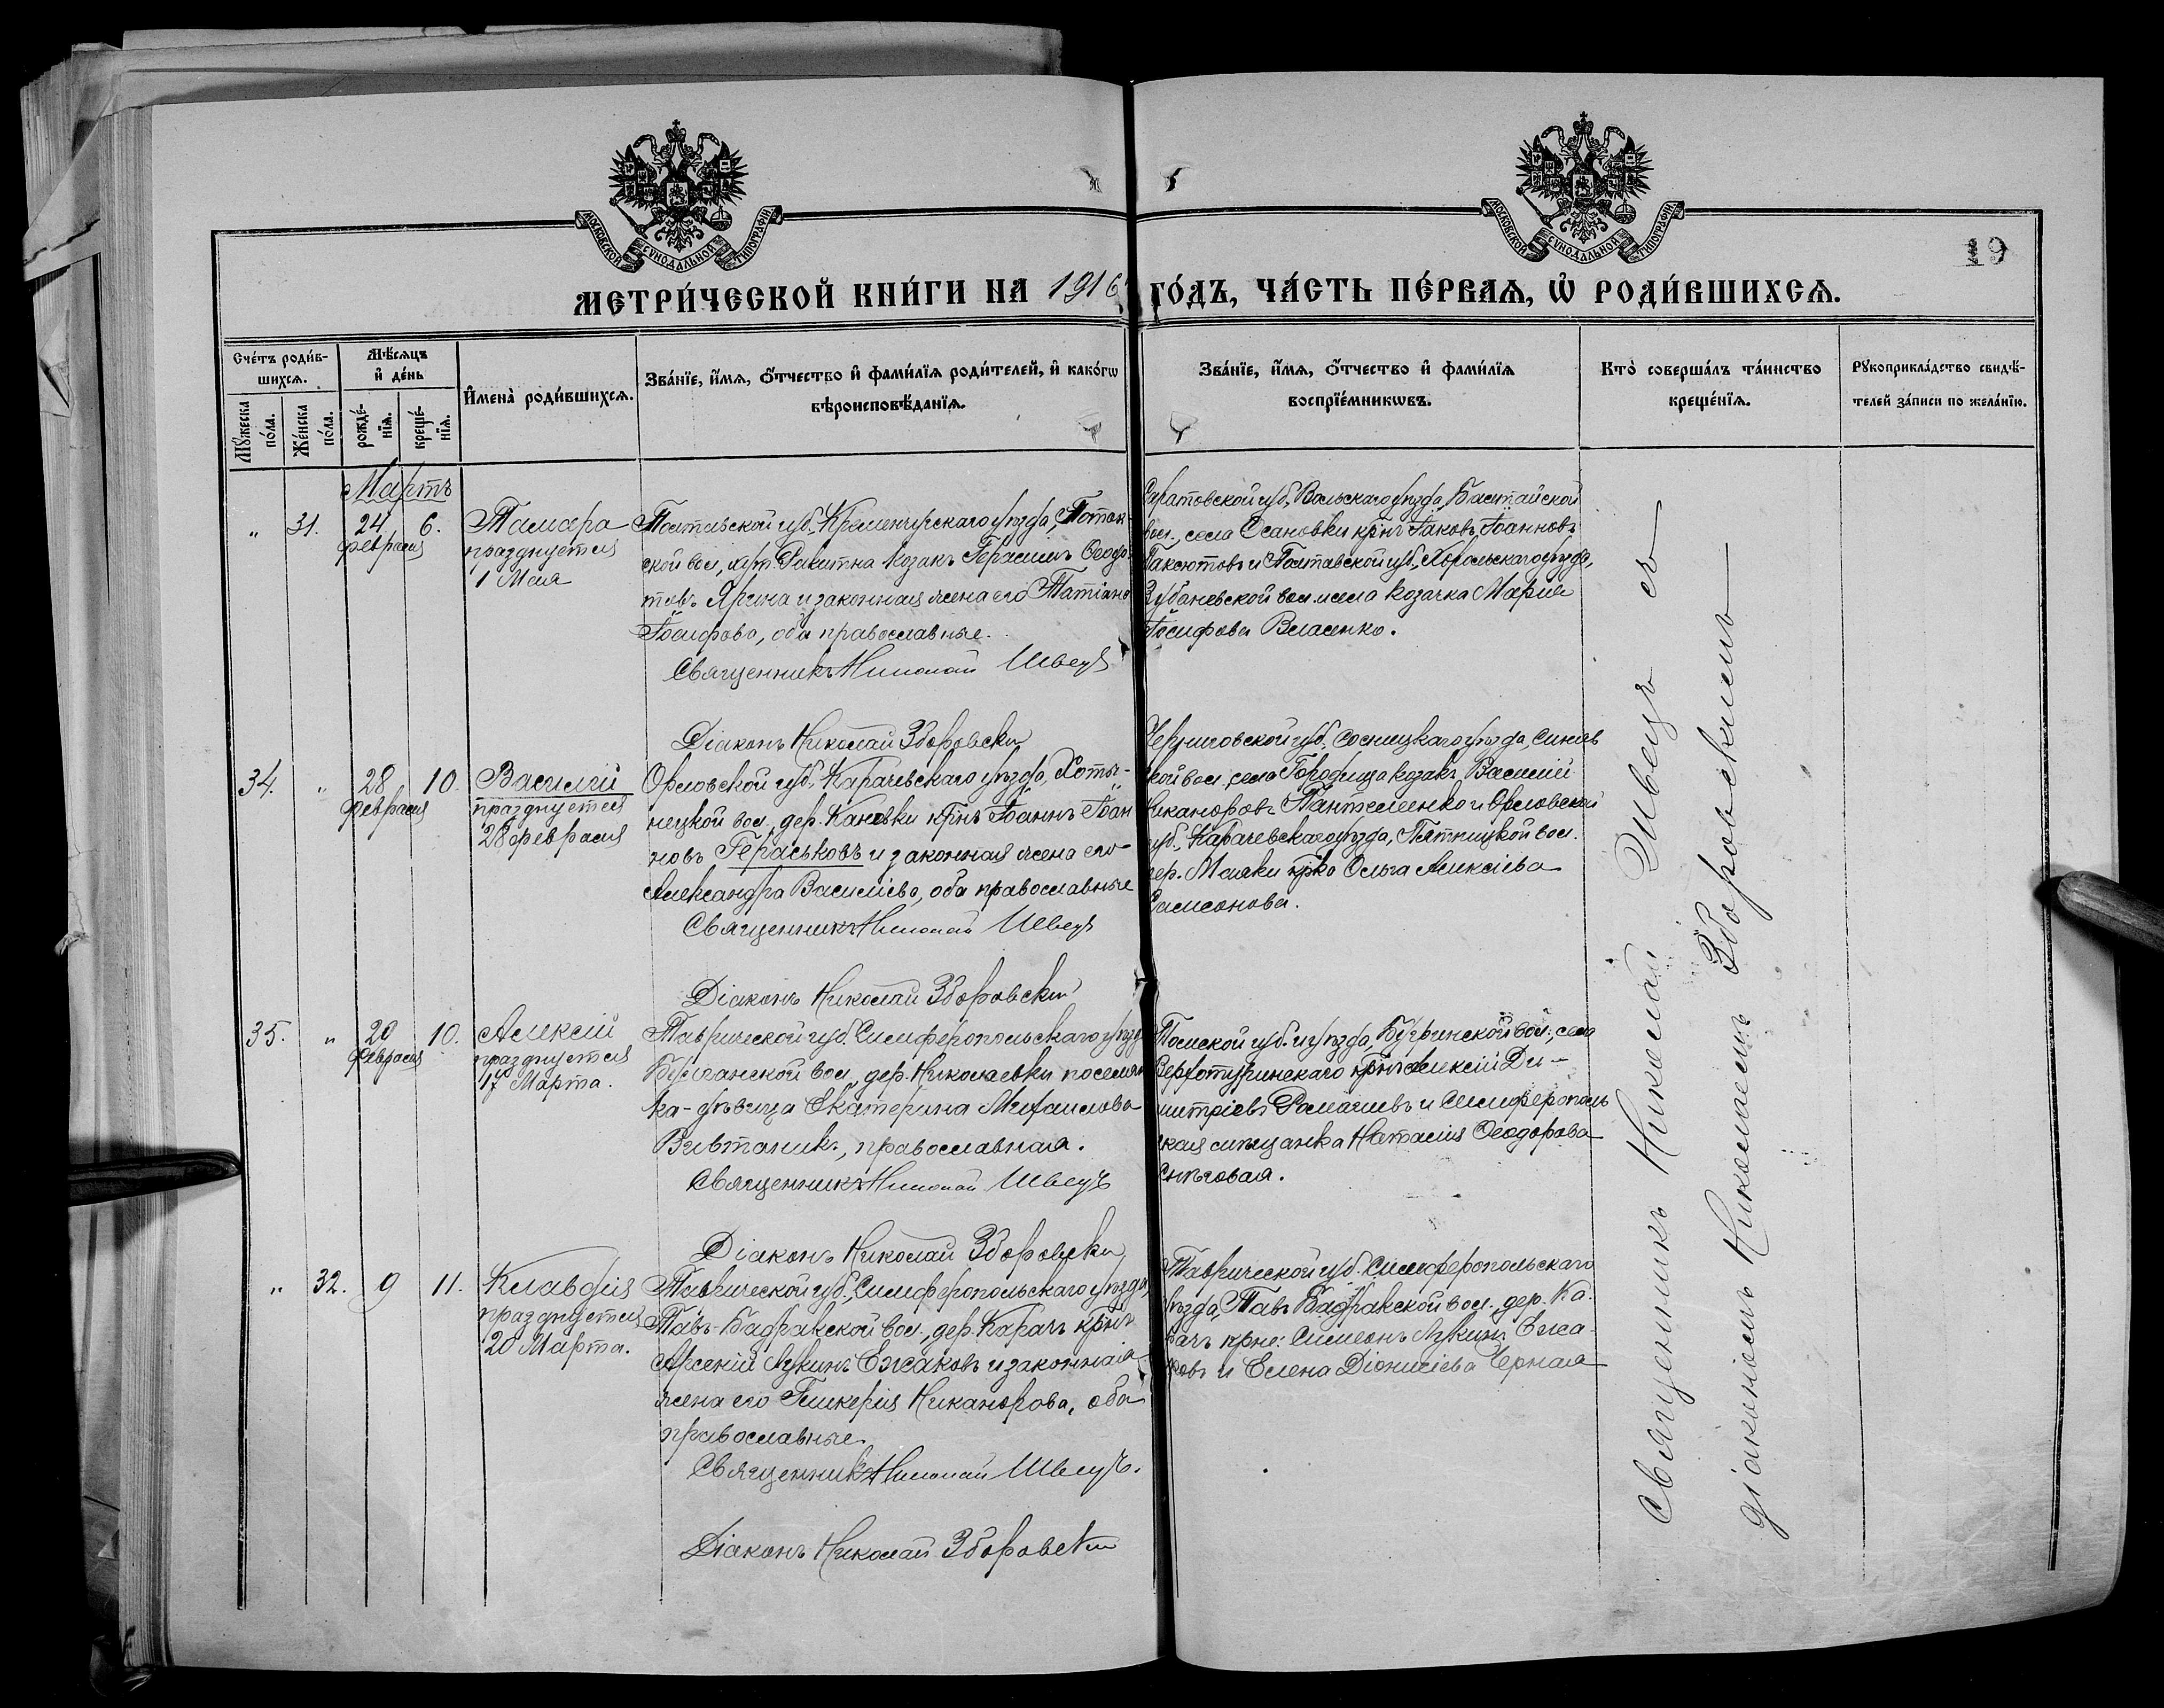 МОСКОВСКОЙ СѴНОДАЛЬНОЙ ТИПОГРАФІИ.
МОСКОВСКОЙ СѴНОДАЛЬНОЙ ТИПОГРАФІИ.
19
МЕТРИ́ЧЕСКОЙ КНИ́ГИ НА 1916 ГО́ДЪ, ЧА́СТЬ ПЕ́РВАЯ, Ѡ҆ РОДИ́ВШИХСЯ.
Сче́тъ роди́в-
шихся.
Мꙋ́жеска по́ла.
Же́нска по́ла.
Мѣ́сяцъ
и҆ де́нь
рожде́-
нїя.
креще́-
нїя.
И҆мена̀ роди́вшихся.
Зва́нїе, и҆́мя, ѻ҆́тчество и҆ фами́лїя роди́телей, и҆ како́гѡ
вѣроисповѣ́данїя.
Зва́нїе, и҆́мя, ѻ҆́тчество и҆ фами́лїя
воспрїе́мникѡвъ.
Кто̀ соверша́лъ та́инство
креще́нїя.
Рꙋкоприкла́дство свидѣ́-
телей за́писи по жела́нїю.
Мартъ
„ 31. 24 6.
февраля
Тамара
празднуется
1 Мая
Полтавской губ., Кременчугскаго уѣзда, Поток-
ской вол., хут. Ракитна козакъ Герасимъ Ѳеодо
товъ Ярина и законная жена его Татіана
Іосифова, оба православные.
Священникъ Николай Швецъ
Діаконъ Николай Здоровскій
Саратовской губ., Вольскаго уѣзда, Балтайской
вол., села Осановки крнъ Іаковъ Іоанновъ
Гаксютовъ и Полтавской губ., Хорольскаго уѣзда,
Зубаневской вол. и села козачка Марія
Іосифова Власенко.
34. „ 28 10.
февраля
Василій
празднуется
28 февраля
Орловской губ., Карачевскаго уѣзда, Хоты-
нецкой вол., дер. Кановки крнъ Іоаннъ Іоан
новъ Гераськовъ и законная жена его
Александра Василіева, оба православные
Священникъ Николай Швецъ
Діаконъ Николай Здоровскій
Черниговской губ., Сосницкаго уѣзда, Синяв
кой вол., села Городища козакъ Василій
Никаноровъ Пантеленко и Орловской
губ., Карачевскаго уѣзда, Пятницкой вол.
дер. Маяки крка Ольга Алексіева
Самсонова.
35. „ 29 10.
февраля
Алексій
празднуется
17 Марта.
Таврической губ. Симферопольскаго уѣзда
Булганской вол., дер. Николаевки поселян
ка-дѣвица Екатерина Михаилова
Вивтаникъ, православная.
Священникъ Николай Швецъ
Діаконъ Николай Здоровскій
Томской губ. и уѣзда, вол., села
Верхотуринскаго крнъ Алексій Ди-
митріевъ Ромачевъ и Симферополь
ская мѣщанка Наталія Ѳеодорова
Снѣговая.
„ 32. 9 11.
Клавдія
празднуется
20 Марта.
Таврической губ., Симферопольскаго уѣзда,
Тавъ-Бадракской вол., дер. Карачъ крнъ
Арсеній Лукинъ Ежаковъ и законная
жена его Гликерія Никанорова, оба
православные.
Священникъ Николай Швецъ.
Діаконъ Николай Здоровскій
Таврической губ. Симферопольскаго
уѣзда, Тавъ Бадракской вол., дер. Ка-
рачъ крне: Симеонъ Лукинъ Ежа-
ковъ и Елена Діонисіева Черная
Священникъ Николай Швецъ съ
діакономъ Николаемъ Здоровскимъ